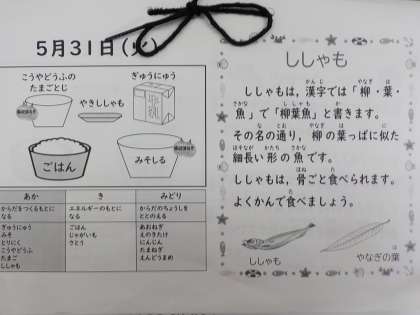 5月31日(火)
こうやどうふの
たまごとじ
ぎゅうにゅう
やきししゃも
牛乳
ごはん
みそしる
あか
き
みどり
からだをつくるもとに
なる
エネルギーのもとに
なる
からだのちょうしを
ととのえる
ぎゅうにゅう
みそ
とりにく
こうやどうふ
たまご
ししゃも
ごはん
じゃがいも
さとう
あおねぎ
えのきたけ
にんじん
たまねぎ
えんどうまめ
ししゃも
ししゃもは,漢字では「柳・葉・
魚」で「柳葉魚」と書きます。
その名の通り,柳の葉っぱに似た
細長い形の魚です。
ししゃもは,骨ごと食べられます。
よくかんで食べましょう。
ししゃも
やなぎの葉